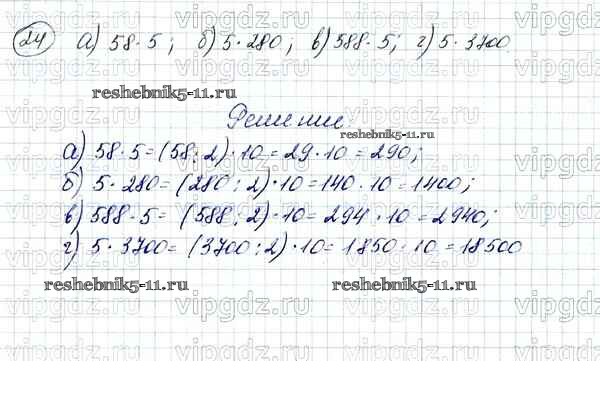 vipgdz.ru vipgdz.ru vipgdz.ru vipgdz.ru
24 а) 58·5; б) 5·280; в) 588·5; г) 5·3700
reshebnik5-11.ru
Решение.
reshebnik5-11.ru
а) 58·5=(58:2)·10=29·10=290;
б) 5·280=(280:2)·10=140·10=1400;
в) 588·5=(588:2)·10=294·10=2940;
г) 5·3700=(3700:2)·10=1850·10=18500
reshebnik5-11.ru reshebnik5-11.ru
vipgdz.ru vipgdz.ru vipgdz.ru vipgdz.ru